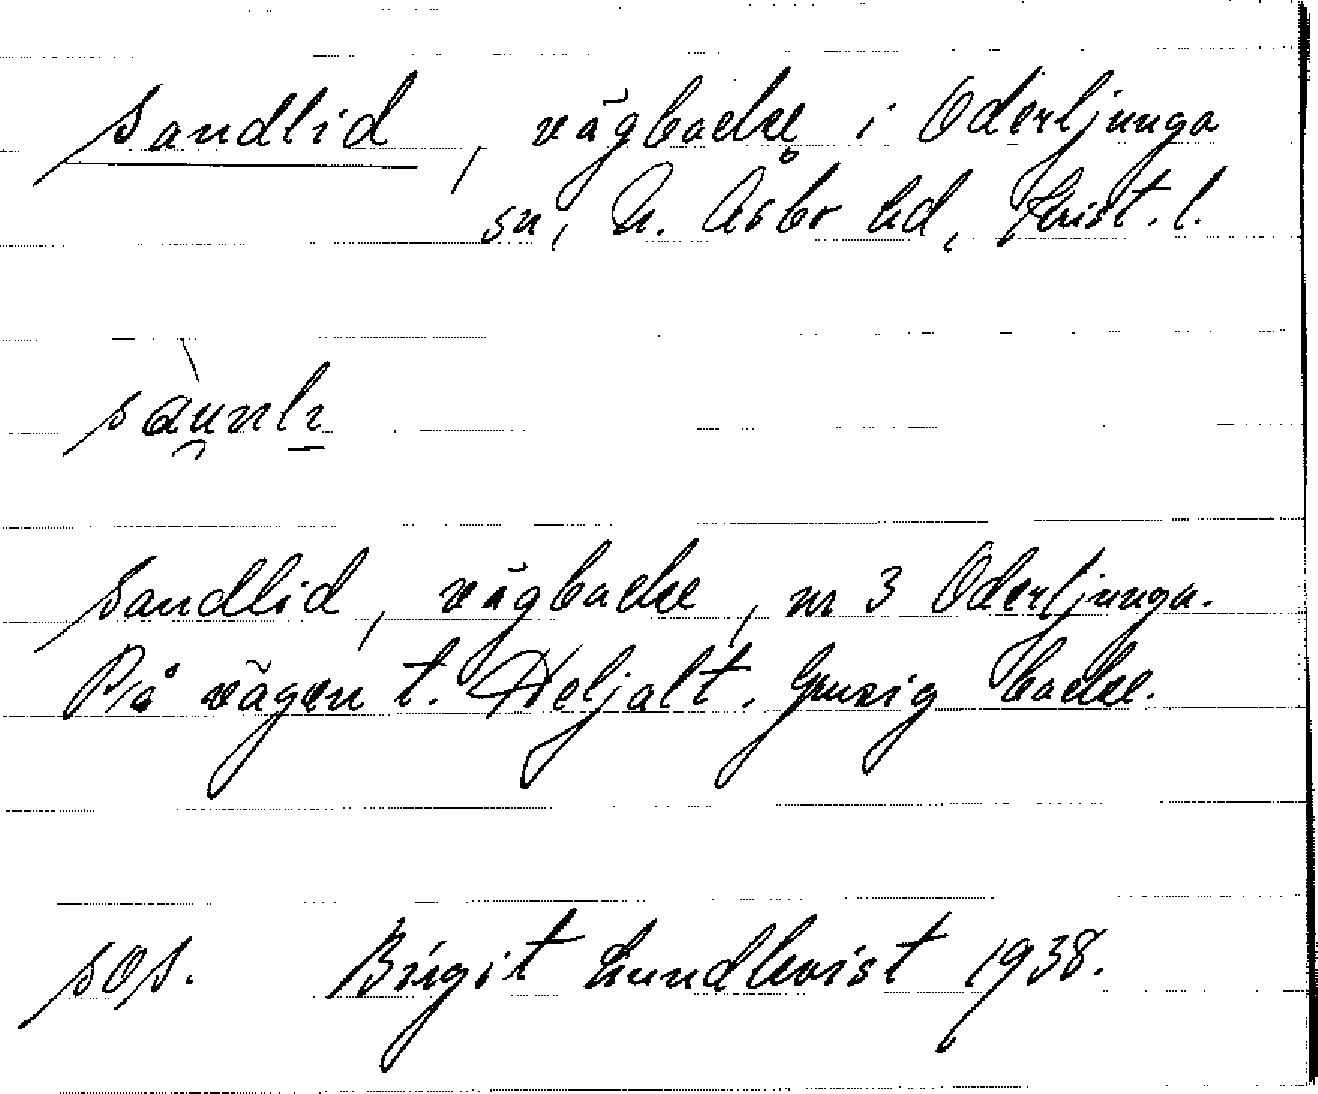 Sandlid, vägbacke i Oderljunga
sn, N. Åsbo hd, Krist. l.
Sandlid, vägbacke, nr 3 Oderljunga.
På vägen t. Heljalt. Grusig backe.
SOS. Birgit Lundkvist 1938.